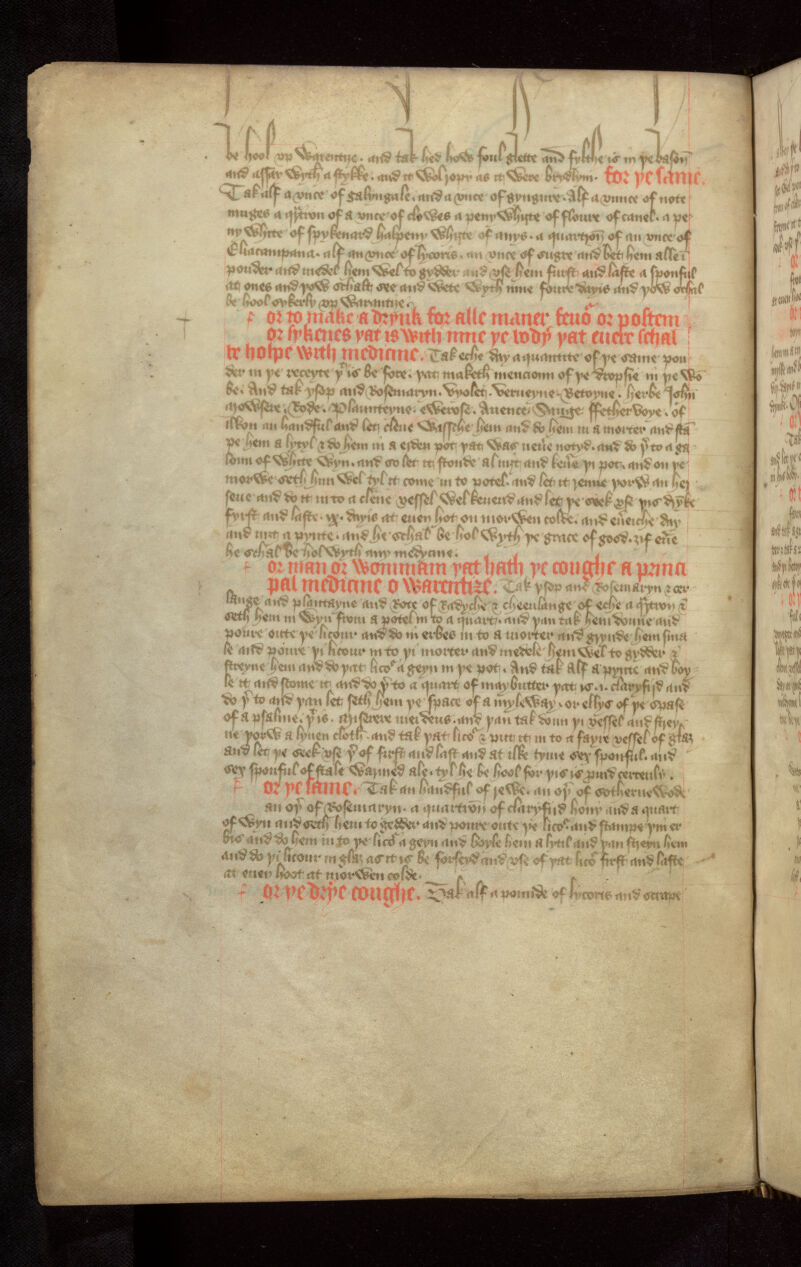 be hool vp Warentyse. and tak hed how foul glette and fylthe is in ye bason
and assay Wyth a stykke. and it Wol ropy as it Were brydlym. for ye same.
Tak alf a vnce of galyngale. and a vnce of gyngiure. Alf a vnnce of note
muges a q̄tron of a vnce of clowes a peny Whyte of floure of canel. a pe
ny Whyte of spykenard halpeny Whyte of anys. a quartron of an vnce of
Eliacampana. alf an vnce of lycoris. an vnce of sugre and bet hem alle ī
pouder and medel hem Wel to gydder and vse hem furst and laste a sponful
at ones and yow schalt see and Wete Wyth inne foure dayis and yow schul
be hool sykerly vp Warantyse.
or to make a drynk for alle maner feuer or postem
or sykenes yat is with inne ye body yat euere schal
be holpe with medicine. Tak eche day a quantite of ye same pou
der in ye receyte yt is be fore. yat maketh mencionn of ye dropsie in ye Wo
be. And tak ysop and Rosemaryn. Vyolet. Verueyne. Betoyne. herbe John
mowsere. Rode. Plaunteyne. Auence. Sauge. ffetherVoye. of
ilkon an handful and let clene Wassche hem and do hem in a morter and stā
pe hem a lytyl & do hem in a erden pot yat Was neue notyd. and do yto a ga
lonn of Whyte Wyn. and so let it stonde al nyt and keue yi pot. and on ye
morWe seth hnn Wel tyl it come in to potel. and let it renne yorW an her
seue and do it in to a clene vessel Wel keuerid and let ye seek vse yis drynke
fyrst and laste. ix. dayis at euen hot on morWen colde. and eueriche day
and nyt a pynte. and he schal be hol Wyth ye grace of god. yif euere
he schal be hol Wyth any medycine.
or man or Womman yat hath ye coughe a princi
pal medicine o Warentize. Tak ysop and Rosemaryn & cer
lange and plantayne and Rote of Radyche & cheenlange of eche a q̄tron &
seth hem in Wyn from a potel in to a quart. and yan tak hem donne and
poure oute ye licour and do in erbes in to a morter and grynde hem sma
le and poure yi licour in to yi morter and medele hem Wel to gydder &
streyne hem and do yat licor a geyn in ye pot. And tak alf a pynte and boy
le it and skome it and do yto a quart of maybutter yat is .i. claryfijd and
do yto and yan let seth hem ye space of a myleWay. or ellys of ye space
of a psalme. yt is. Miserere mei deus. and yan tak doun yi vessel and strey
ne yorW a lynen cloth. and tak yat licor & put it in to a fayre vessel of glas
and let ye seek vse yof first and last and at ilke tyme sex sponful. and
sex sponful of stale Warmed ale. tyl he be hool for yis is prued certeuly.
or ye same. Tak an handful of reWe. an oyr of sotherneWode
an oyr of Rosemaryn. a quartron of claryfijd hony and a quart
of Wyn and seth hem to gedder and poure oute ye licor. and stampe yin er
bis and do hem in to ye licor a geyn and boyle hem a lytil and yan streyn hem
and do yi licour in glas as it is be forseyd and vse of yat licor first and laste
at euen hoot at morWen colde.
or ye drye coughe. Tak alf a pounde of lycoris and scrape